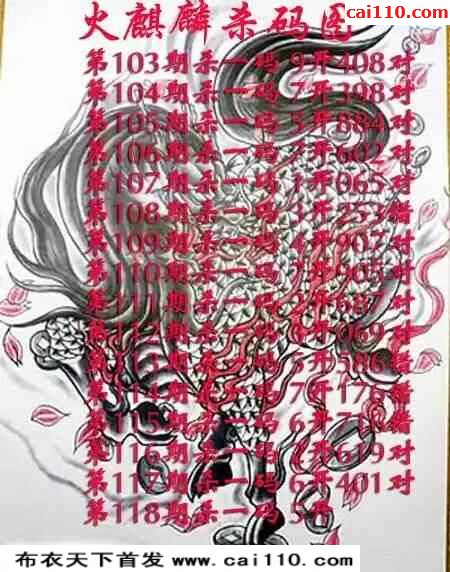 cai110.com
火麒麟杀码图
第103期杀一码9开408对
第104期杀一码7开398对
第105期杀一码5开884对
第106期杀一码 开602对
第107期杀一码1开065对
第108期杀一码3开253错
第109期杀一码4开907对
第110期杀一码 开905对
第111期杀一码 开687对
第 期杀一码 开069对
第 期杀一码5开586错
第114期杀一码7开176错
第115期杀一码6开 错
第116期杀一码 开619对
第117期杀一码6开401对
第118期杀一码5开
布衣天下首发 www.cai110.com